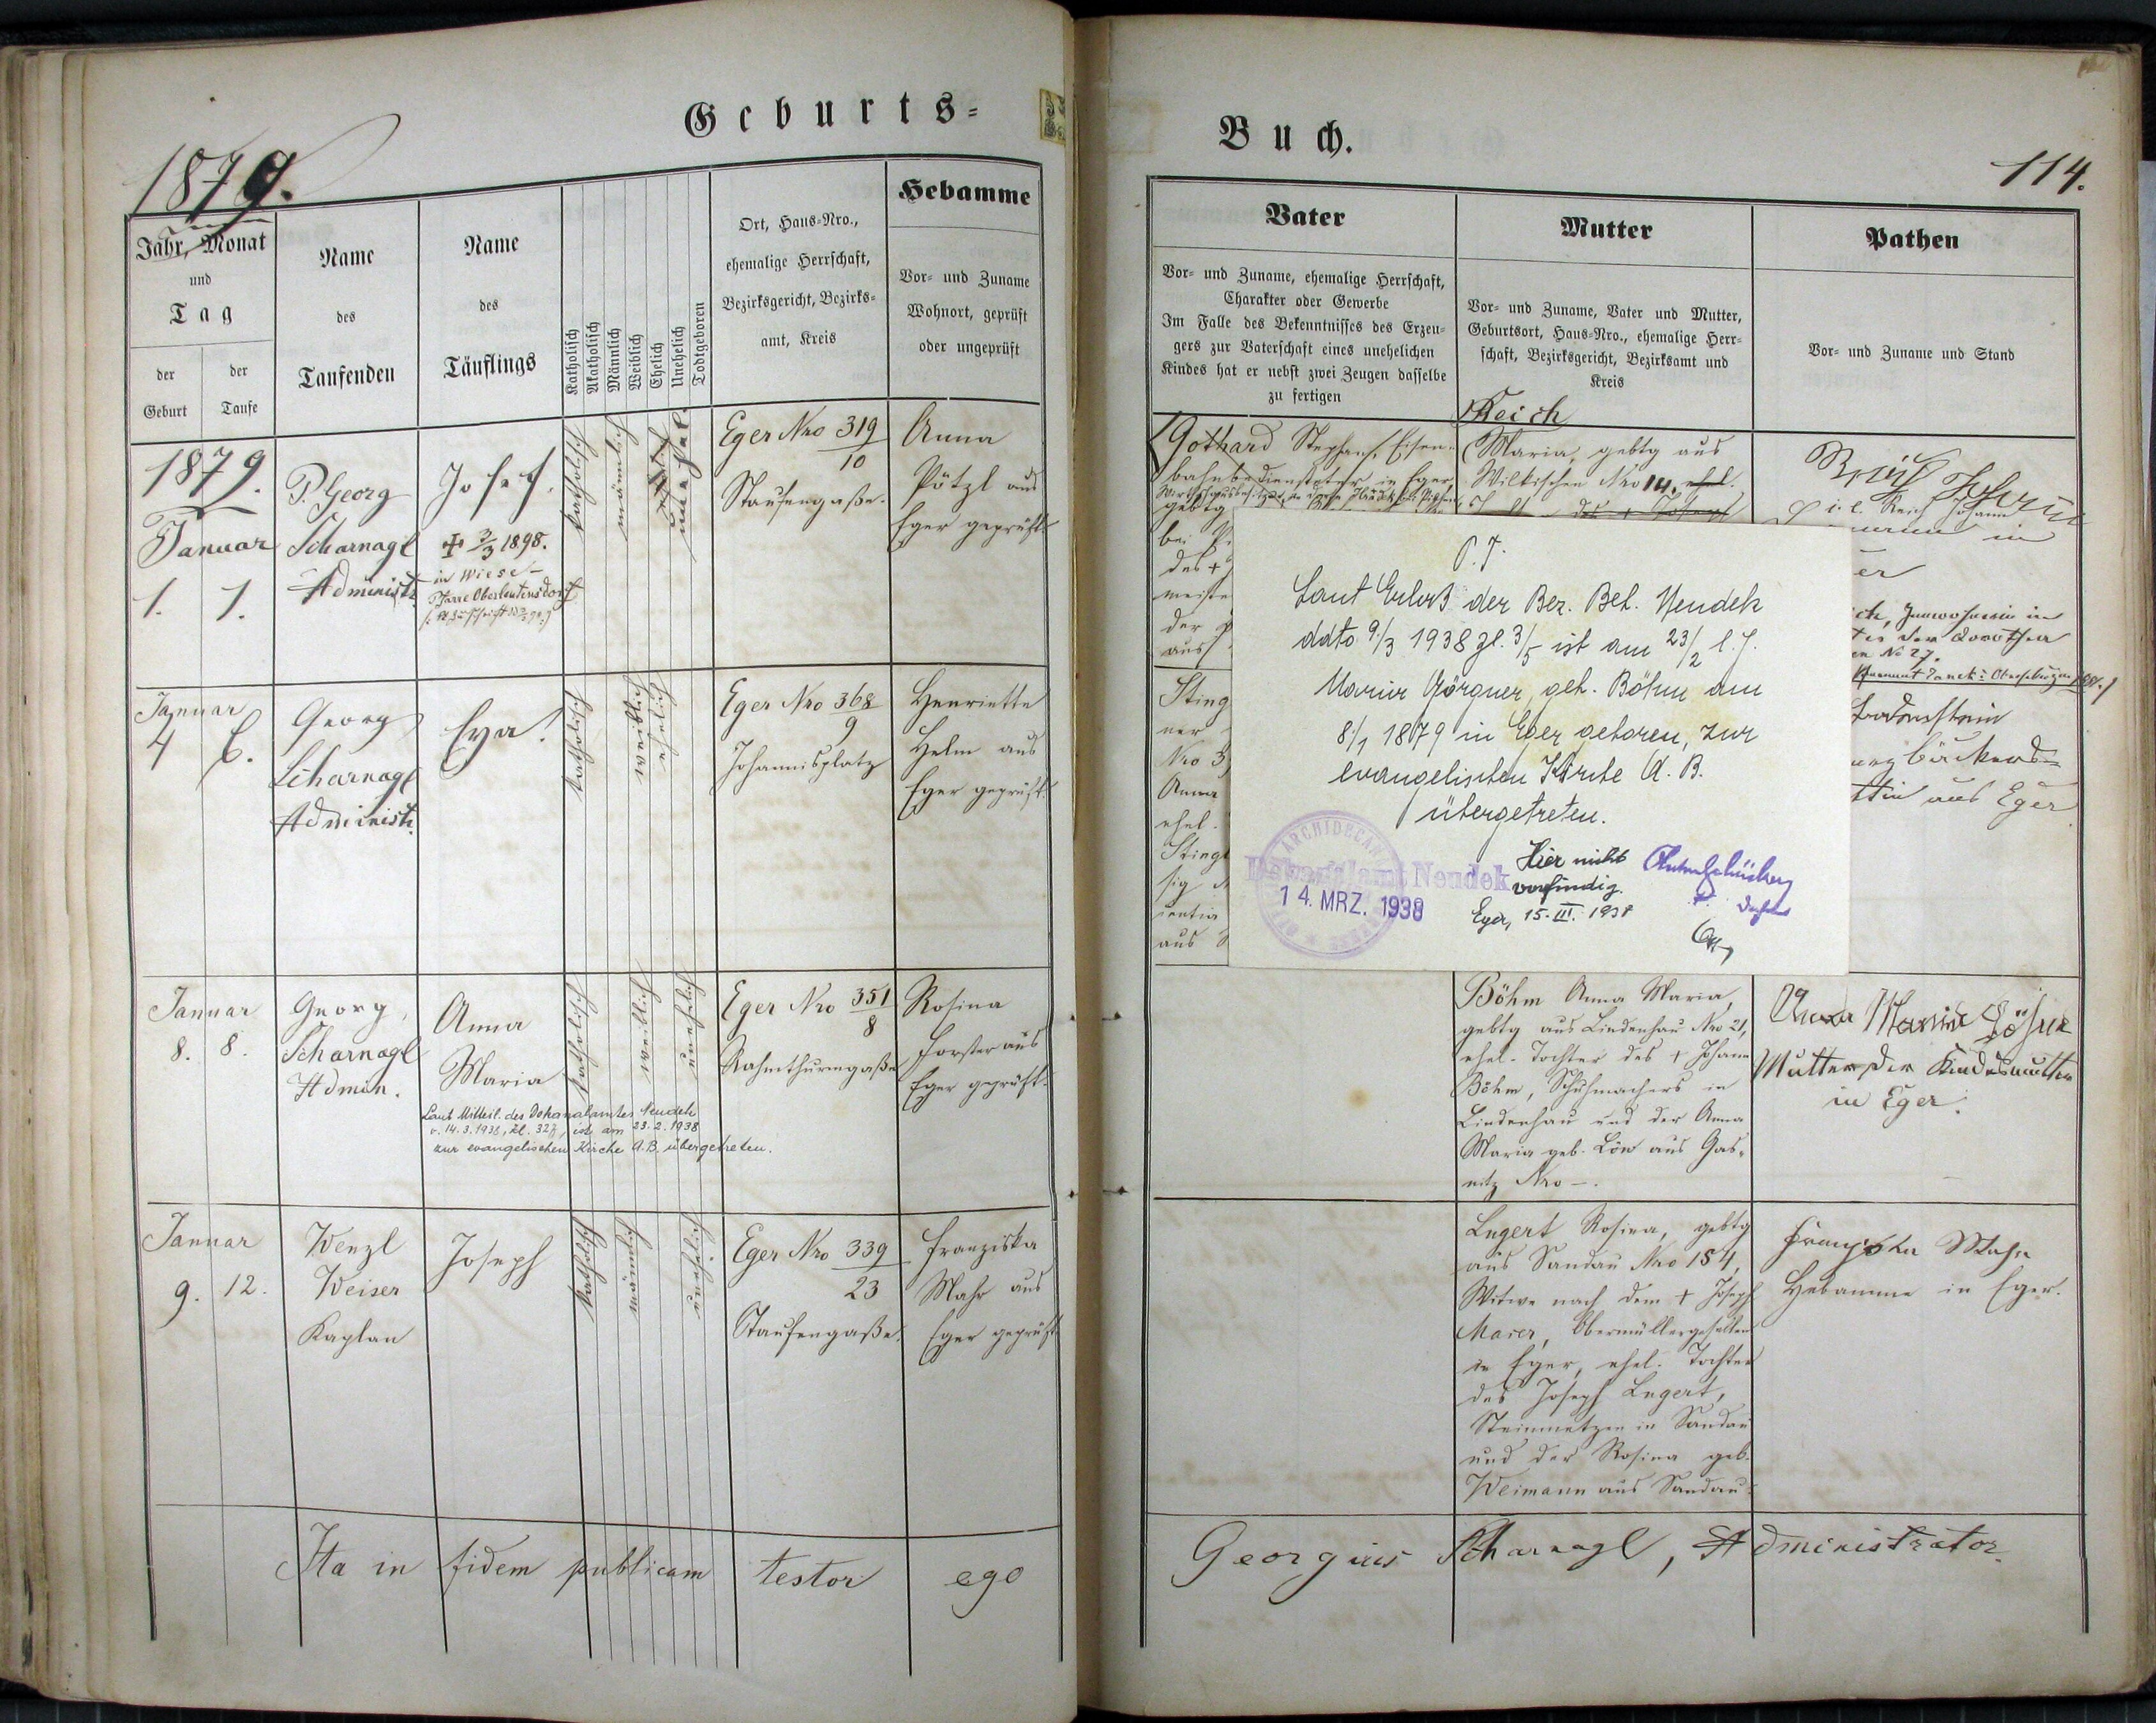 Geburts-
1879.
Jahr, Monat
und
Tag
der
Geburt
der
Taufe
Name
des
Taufenden
Name
des
Täuflings
Katholisch
Akatholisch
Männlich
Weiblich
Ehelich
Unehelich
Todtgeboren
Ort, Haus-Nro.,
ehemalige Herrschaft,
Bezirksgericht, Bezirks-
amt, Kreis
Hebamme
Vor- und Zuname
Wohnort, geprüft
oder ungeprüft
1879.
Januar
1. 1.
P. Georg
Scharnagl
Administr.
Josef.
✠ 3/3 1898.
in Wiese-
Pfarre Oberleutensdorf
katholisch
männlich
Eger Nro 319/10
Staufengaße.
Anna
Pötzl aus
Eger geprüft
Januar
4 6.
Georg
Scharnagl
Administr.
Eva.
katholisch
weiblich
ehelich
Eger Nro 368/9
Johannisplatz
Henriette
Helm aus
Eger geprüft.
Januar
8. 8.
Georg
Scharnagl
Admin.
Anna
Maria
Laut Mitteil. des Dekanalamtes Neudek
v. 14.3.1938, Zl. 327, ist am 23.2.1938
zur evangelischen Kirche A.B. übergetreten.
katholisch
weiblich
unehelich
Eger Nro 351/8
Rahmthurmgaße
Rosina
Forster aus
Eger geprüft.
Januar
9. 12.
Wenzl
Weiser
Kaplan
Joseph
katholisch
männlich
unehelich
Eger Nro 339
23
Staufengaße.
Franziska
Mahr aus
Eger geprüft
Ita in fidem publicam testor ego
Buch.
114.
Vater
Vor- und Zuname, ehemalige Herrschaft,
Charakter oder Gewerbe
Im Falle des Bekenntnisses des Erzeu-
gers zur Vaterschaft eines unehelichen
Kindes hat er nebst zwei Zeugen dasselbe
zu fertigen
Mutter
Vor- und Zuname, Vater und Mutter,
Geburtsort, Haus-Nro., ehemalige Herr-
schaft, Bezirksgericht, Bezirksamt und
Kreis
Pathen
Vor- und Zuname und Stand
Reich
Gothard Stephan, Eisen-
bahnbediensteter in Eger
gebtg
bei
des +
meiste
der
aus
Maria, gebtg aus
Wilkischen Nro 14, ehel.
des + Joseph
i.e. Reich Johann
in
er
Sting
ner
Nro 3
Anna
ehel.
Stingl
sig
aus
aus Eger
P. T.
Laut Erlaß der Bez. Beh. Neudek
ddto 9/3 1938 Zl. 3/5 ist am 23/2 l. J.
Maria Görgner, geb. Böhm am
8/1 1879 in Eger geboren, zur
evangelischen Kirche A. B.
übergetreten.
Dekanalamt Neudek
14. MRZ. 1938
Hier nicht
vorfindig.
Eger, 15. III. 1938
Böhm Anna Maria,
gebtg aus Lindenhau Nro 21,
ehel. Tochter des + Johann
Böhm, Schuhmachers in
Lindenhau und der Anna
Maria geb. Löw aus Gas-
nitz Nro -.
Anna Maria Böhm
Mutter der Kindesmutter
in Eger.
Lugert Rosina, gebtg
aus Sandau Nro 154,
Witwe nach dem + Joseph
Maier, Obermüllergesellen
in Eger, ehel. Tochter
des Joseph Lugert,
Steinmetzen in Sandau
und der Rosina geb.
Weimann aus Sandau.
Franziska Mahr
Hebamme in Eger.
Georgius Scharnagl, Administrator.